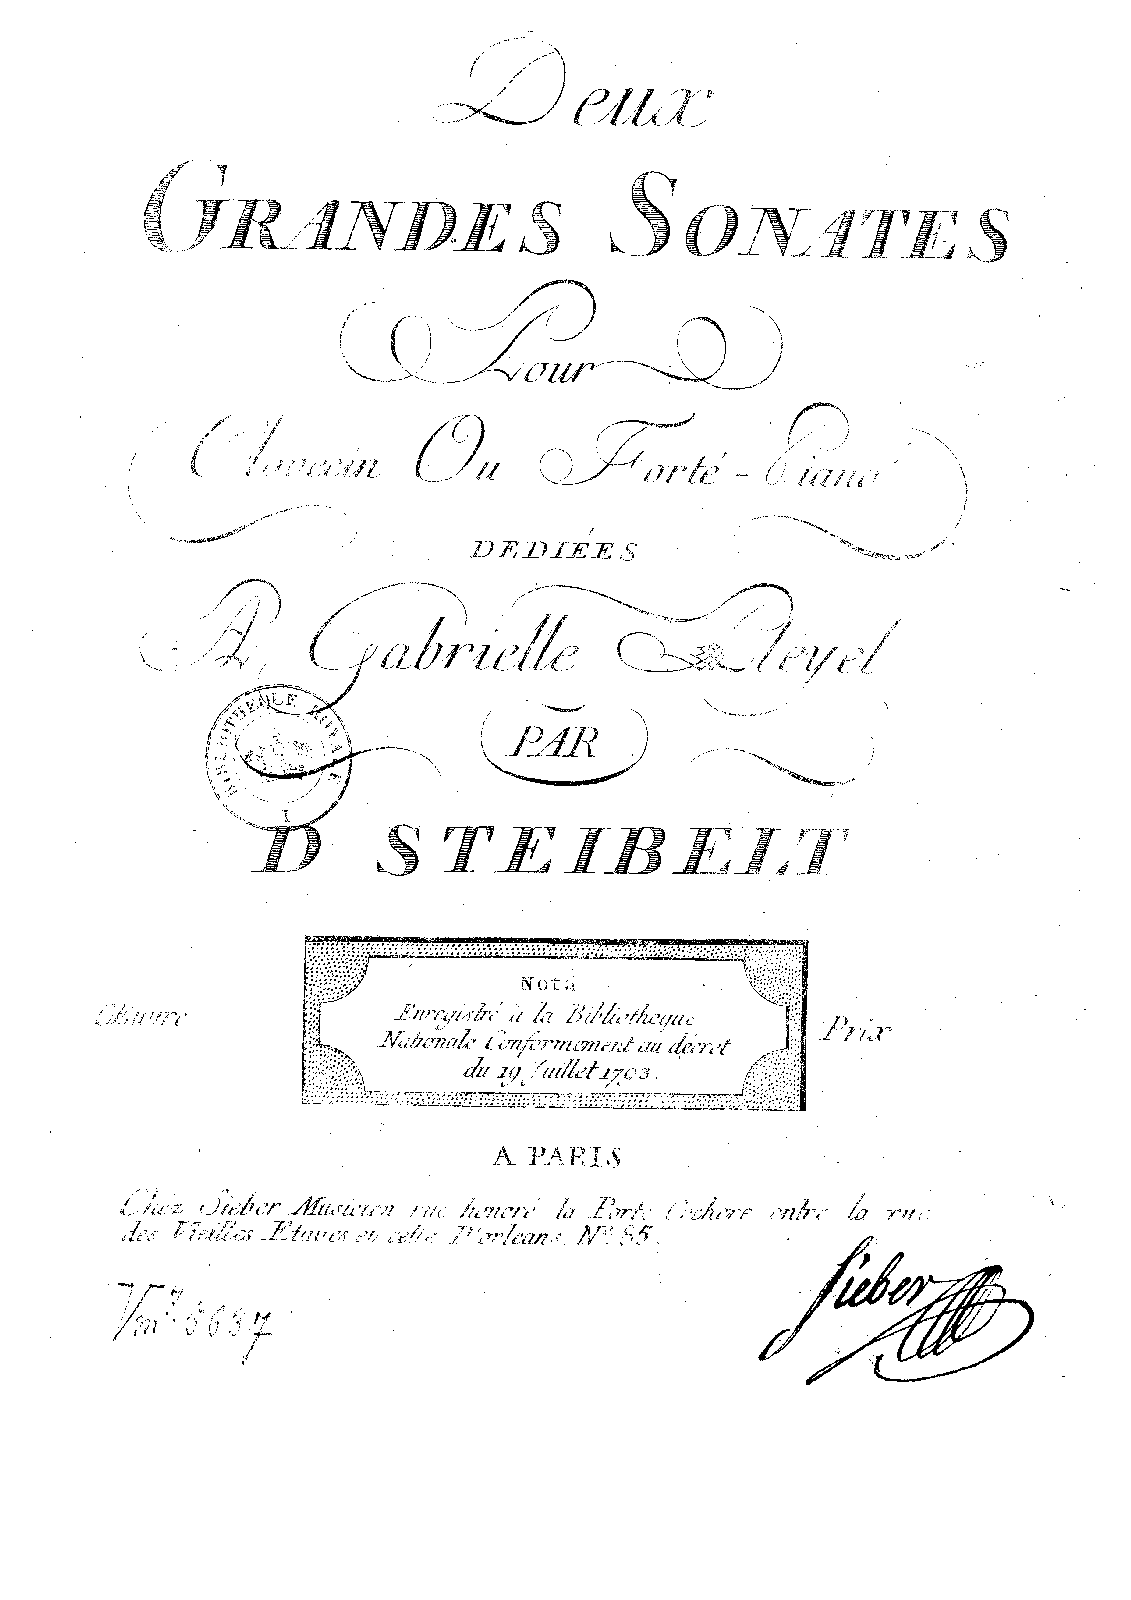 Deux
GRANDES SONATES
Pour
Clavecin Ou Forté-Piano
DEDIÉES
A Gabrielle Pleyel
PAR
BIBLIOTHEQUE ROYALE
I
D STEIBELT
Nota
Enregistré à la Bibliotheque
Nationale Conformement au décret
du 19 Juillet 1793.
Œuvre
Prix
A PARIS
Chéz Sieber Musicien rue honoré la Porte Cochere entre la rue
des Vieilles Etuves et celle D'orleans. Nº 85.
Sieber
Vm7 5637